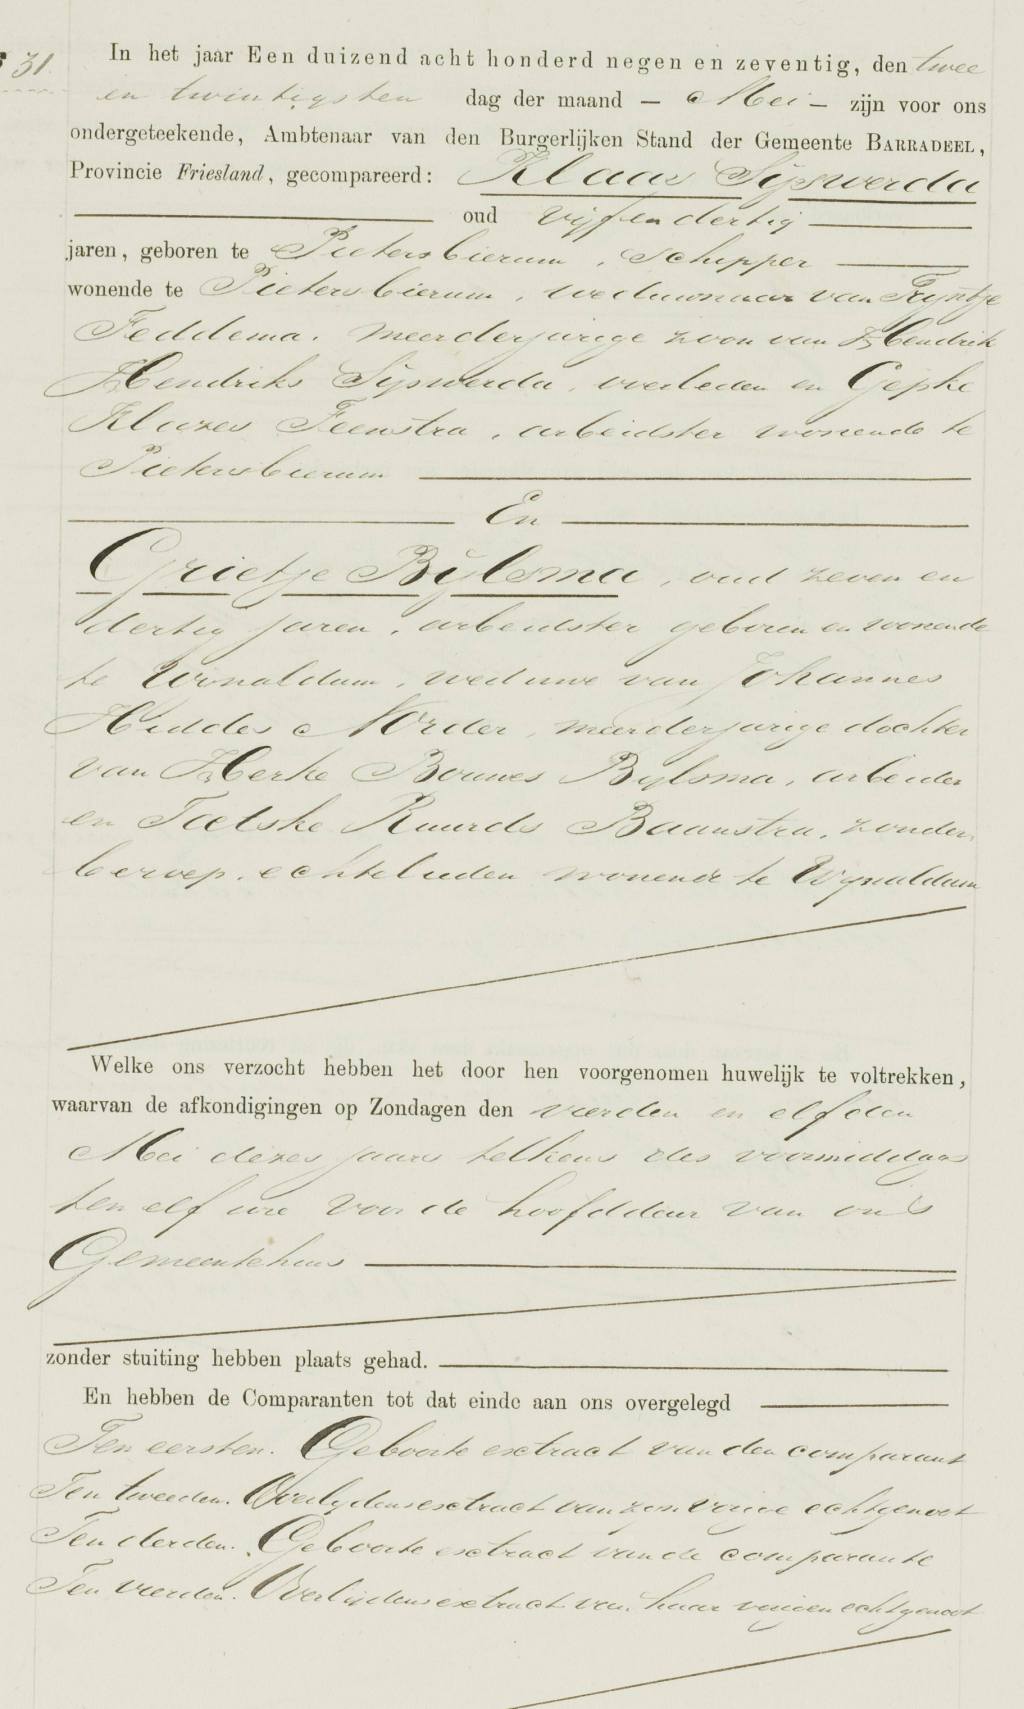 31
In het jaar Een duizend acht honderd negen en zeventig, den twee
en twintigsten dag der maand — Mei — zijn voor ons
ondergeteekende, Ambtenaar van den Burgerlijken Stand der Gemeente BARRADEEL,
Provincie Friesland, gecompareerd: Klaas Sijswerda
oud vijf en dertig
jaren, geboren te Pietersbierum, schipper
wonende te Pietersbierum, weduwnaar van Trijntje
Feddema, meerderjarige zoon van Hendrik
Hendriks Sijswerda, overleden en Gepke
Klazes Feenstra, arbeidster wonende te
Pietersbierum
En
Grietje Bijlsma, oud zeven en
dertig jaren, arbeidster geboren en wonende
te Wijnaldum, weduwe van Johannes
Hiddes Norder, meerderjarige dochter
van Herke Bouwes Bijlsma, arbeider
en Tietske Ruurds Baanstra, zonder
beroep, echtelieden wonende te Wijnaldum
Welke ons verzocht hebben het door hen voorgenomen huwelijk te voltrekken,
waarvan de afkondigingen op Zondagen den vierden en elfden
Mei dezes jaars telkens des voormiddags
ten elf ure voor de hoofddeur van ons
Gemeentehuis
zonder stuiting hebben plaats gehad.
En hebben de Comparanten tot dat einde aan ons overgelegd
Ten eersten. Geboorte extract van den comparant
Ten tweeden. Overlijdensextract van zijn vorige echtgenoot
Ten derden. Geboorte extract van de comparante
Ten vierden. Overlijdensextract van haar vorigen echtgenoot